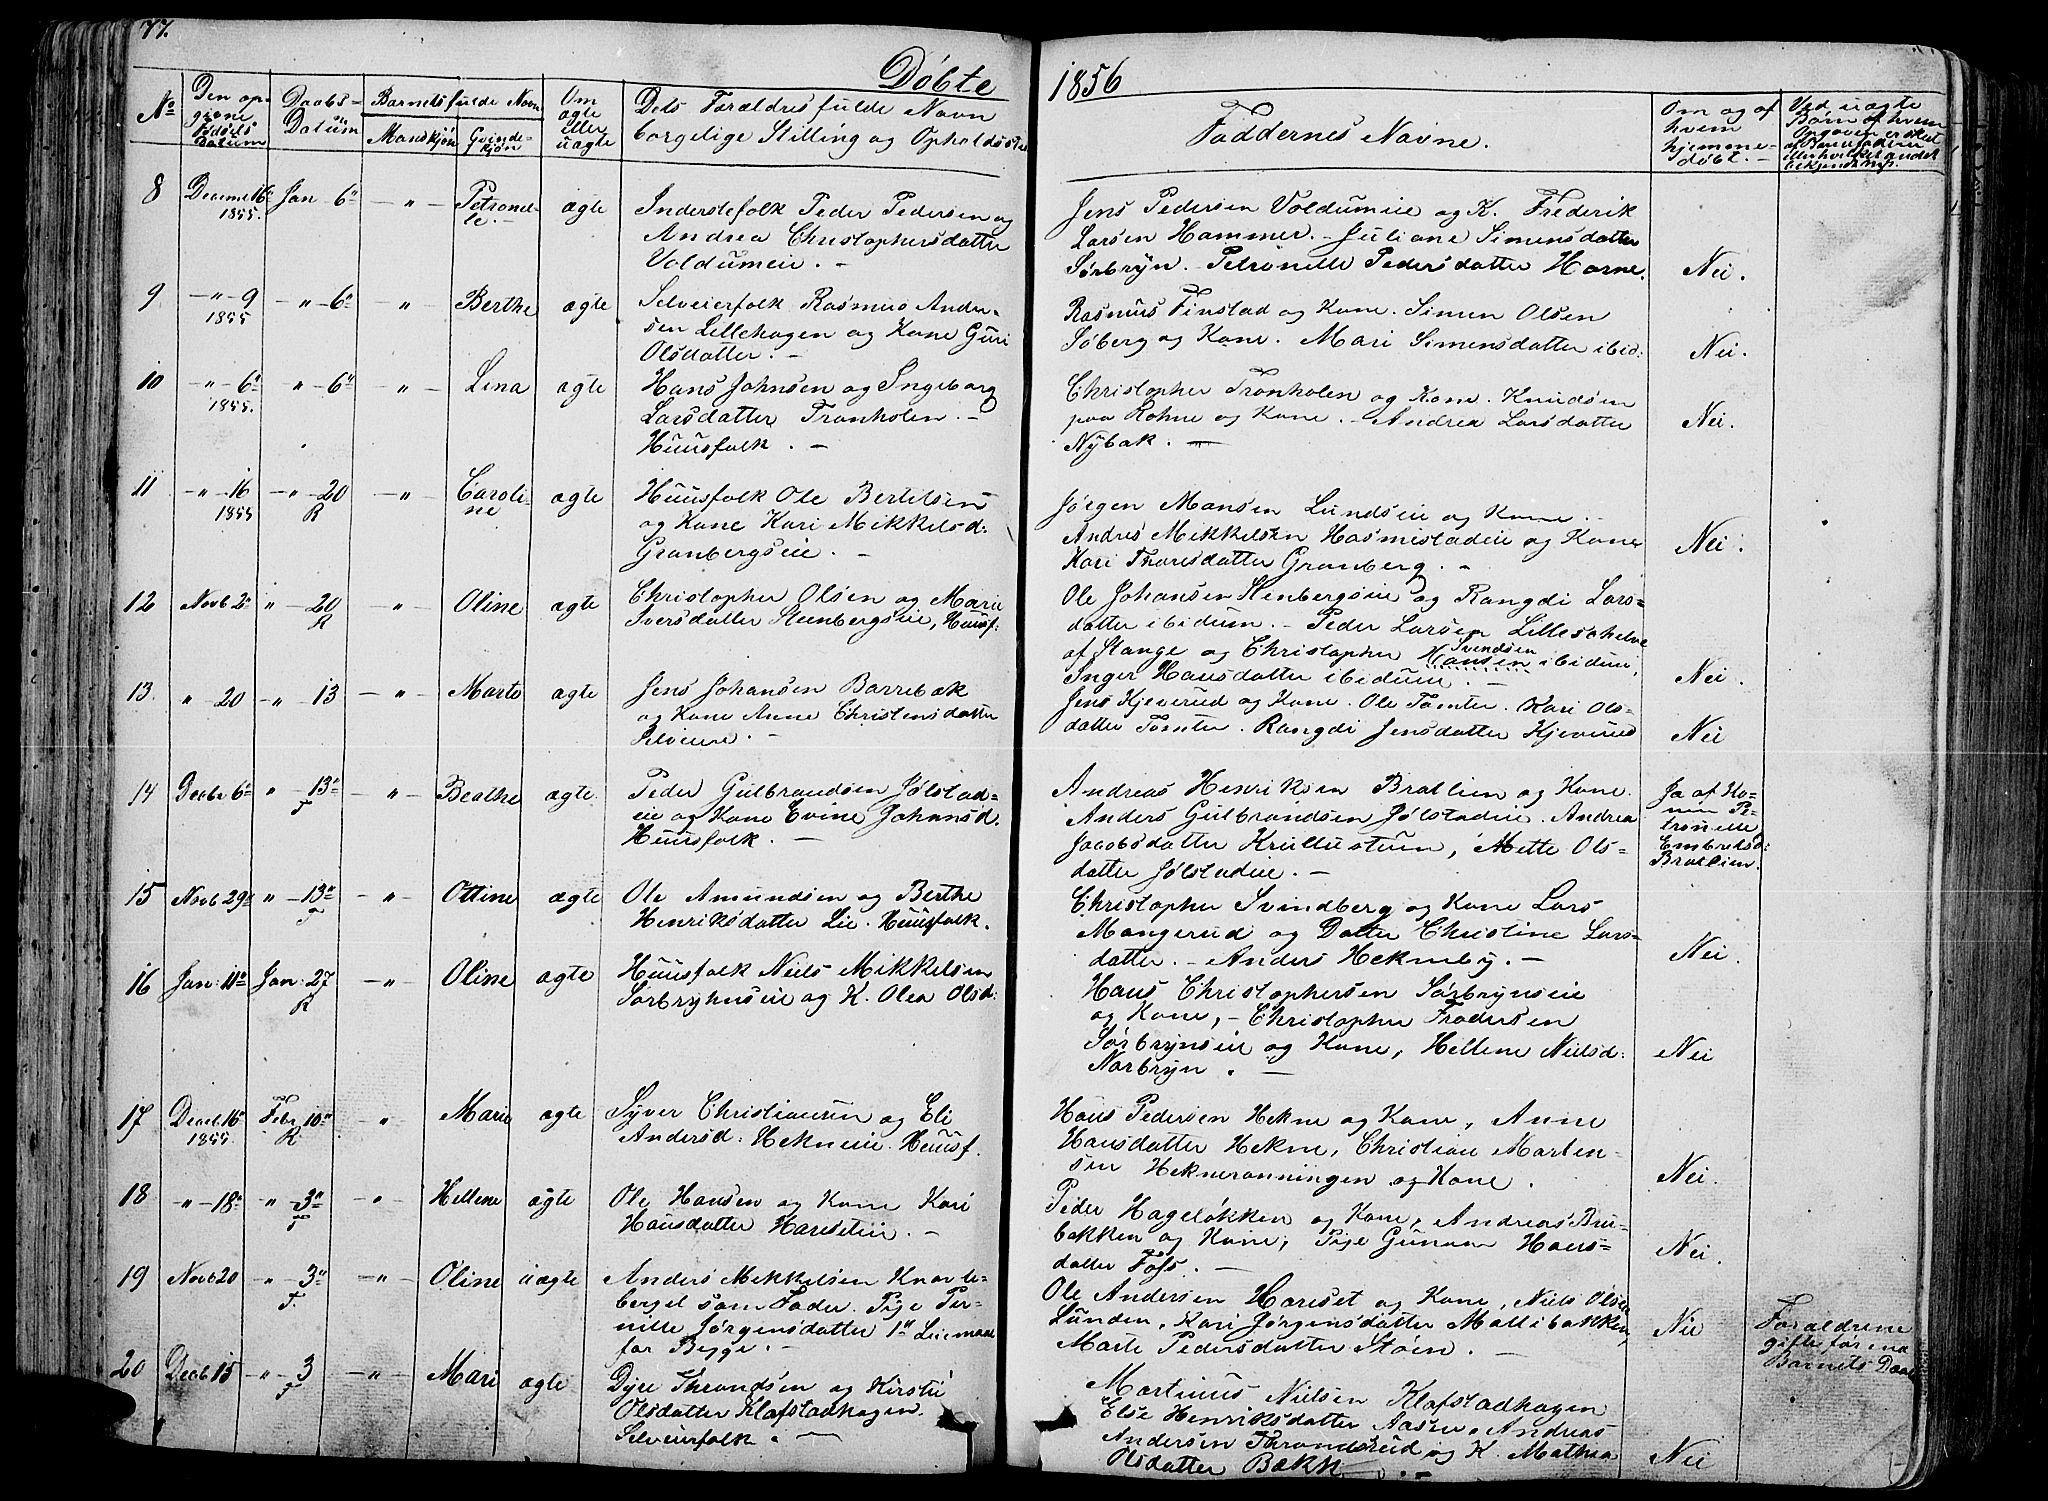 77.
Døbte 1856
No
Den op-
givne
Fødsels
Datum
Daabs-
Datum
Barnets fulde Navn
Mandkjøn
Qvinde-
kjøn
Om
ægte
eller
uægte
Dets Forældres fulde Navn
borgelige Stilling og Opholdssted
Faddernes Navne.
Om og af
hvem
hjemme-
døbt. -
Ved uægte
Børn af hvem
Opgaven er skeet
8 Decemr 16 1855. Jan 6 - " - Petronel-
le. - ægte
Inderstefolk Peder Pedersen og
Andrea Christophersdatter
Voldumeie. -
Jens Pedersen Voldumeie og K. Frederik
Larsen Hammer. - Juliane Simensdatter
Sørbryn. - Petronelle Pedersdatter Horne.
Nei.
9 - " - 9 1855 - " - 6 - " - Berthe ægte
Selveierfolk Rasmus Ander-
sen Lillehagen og Kone Guri
Olsdatter. -
Rasmus Finstad og Kone. Simen Olsen
Søberg og Kone. Mari Simensdatter ibid:
Nei.
10 - " - 6 1855. " - 6 - " - Lina ægte
Hans Johnsen og Ingeborg
Larsdatter Tronholen. -
Huusfolk. -
Christopher Tronholen og Kone. Knudsen
paa Rohne og Kone. - Andrea Larsdatter
Nybak. -
Nei.
11 - " - 16 1855 - " - 20 R - " - Caroli-
ne ægte
Huusfolk Ole Bertelsen
og Kone Kari Mikkelsd:
Granbergseie. -
Jørgen Mansen Lundseie og Kone. -
Andres Mikkelsen Hasmistadeie og Kone
Kari Thoresdatter Granberg. -
Nei.
12 Novb 2 " - 20 R - " - Oline ægte
Christopher Olsen og Marie
Iversdatter Stenbergseie, Huusf:
Ole Johansen Stenbergseie og Rangdi Lars=
datter ibidum. - Peder Larsen Lilleschelve
af Stange og Christopher Hansen Svendsen ibidum,
Inger Hansdatter ibidum. -
Nei.
13. " - 20 - " - 13 - " - Marte ægte
Jens Johansen Barrebæk
og Kone Anne Christensdatter
Selveiere. -
Jens Kjeverud og Kone. Ole Tømter. Kari Ols-
datter Tømter. Rangdi Jensdatter Kjeverud
Nei
14 Decbr 6 " - 13 T - " - Beathe ægte
Peder Gulbrandsen Jølstad=
eie og Kone Evine Johansd.
Huusfolk. -
Andreas Henriksen Bratlien og Kone.
Anders Gulbrandsen Jølstadeie. Andrea
Jacobsdatter Krullustuen, Mette Ols-
datter Jølstadeie. -
Ja af Ko-
nen Pe-
tronelle
Embretsd:
Bratlien.
15 Novb 29 " - 13 T - " - Ottine ægte
Ole Amundsen og Berthe
Henriksdatter Lie. Huusfolk.
Christopher Svindberg og Kone Lars
Mangerud og Datter Christine Lars=
datter. - Anders Hekneby. -
Nei
16 Jan: 11 Jan: 27 R - " - Oline ægte
Huusfolk Niels Mikkelsen
Sørbryhnseie og K. Olea Olsd:
Hans Christophersen Sørbrynseie
og Kone, - Christopher Frodersen
Sørbrynseie og Kone, Hellene Nielsd:
Norbryn. -
Nei
17 Decb 16 1855 Febr 10 R - " - Marie ægte
Syver Christiansen og Eli
Andersd: Hekneeie. Huusf.
Hans Pedersen Hekne og Kone, Anne
Hansdatter Hekne, Christian Marten-
sen Heknerønningen og Kone.
Nei.
18 " - 18 " - 3 T - " - Hellene ægte
Ole Hansen og Kone Kari
Hansdatter Harseteie. -
Peder Hageløkken og Kone, Andreas Bru-
bakken og Kone, Pige Gunnor Hans=
datter Fofs. -
Nei.
19 Novb 20 - " - 3 T. - " - Oline uægte
Anders Mikkelsen Knatte-
berget som Fader. Pige Per-
nille Jørgensdatter 1 Leiermaal
for Begge. -
Ole Andersen Harset og Kone, Niels Olsen
Lunden, Kari Jørgensdatter Mollibakken,
Marte Pedersdatter Støen. -
Nei
Forældrene
gifte førend
Barnets Daab
20 Decb 15 - " - 3 T - " - Mari ægte
Dyre Throndsen og Kirsti
Olsdatter Klofstadhagen.
Selveierfolk. -
Martinus Nielsen Klofstadhagen
Else Henriksdatter Aasen. Andreas
Andersen Throndsrud og K. Mathea
Olsdatter Bækk. -
Nei